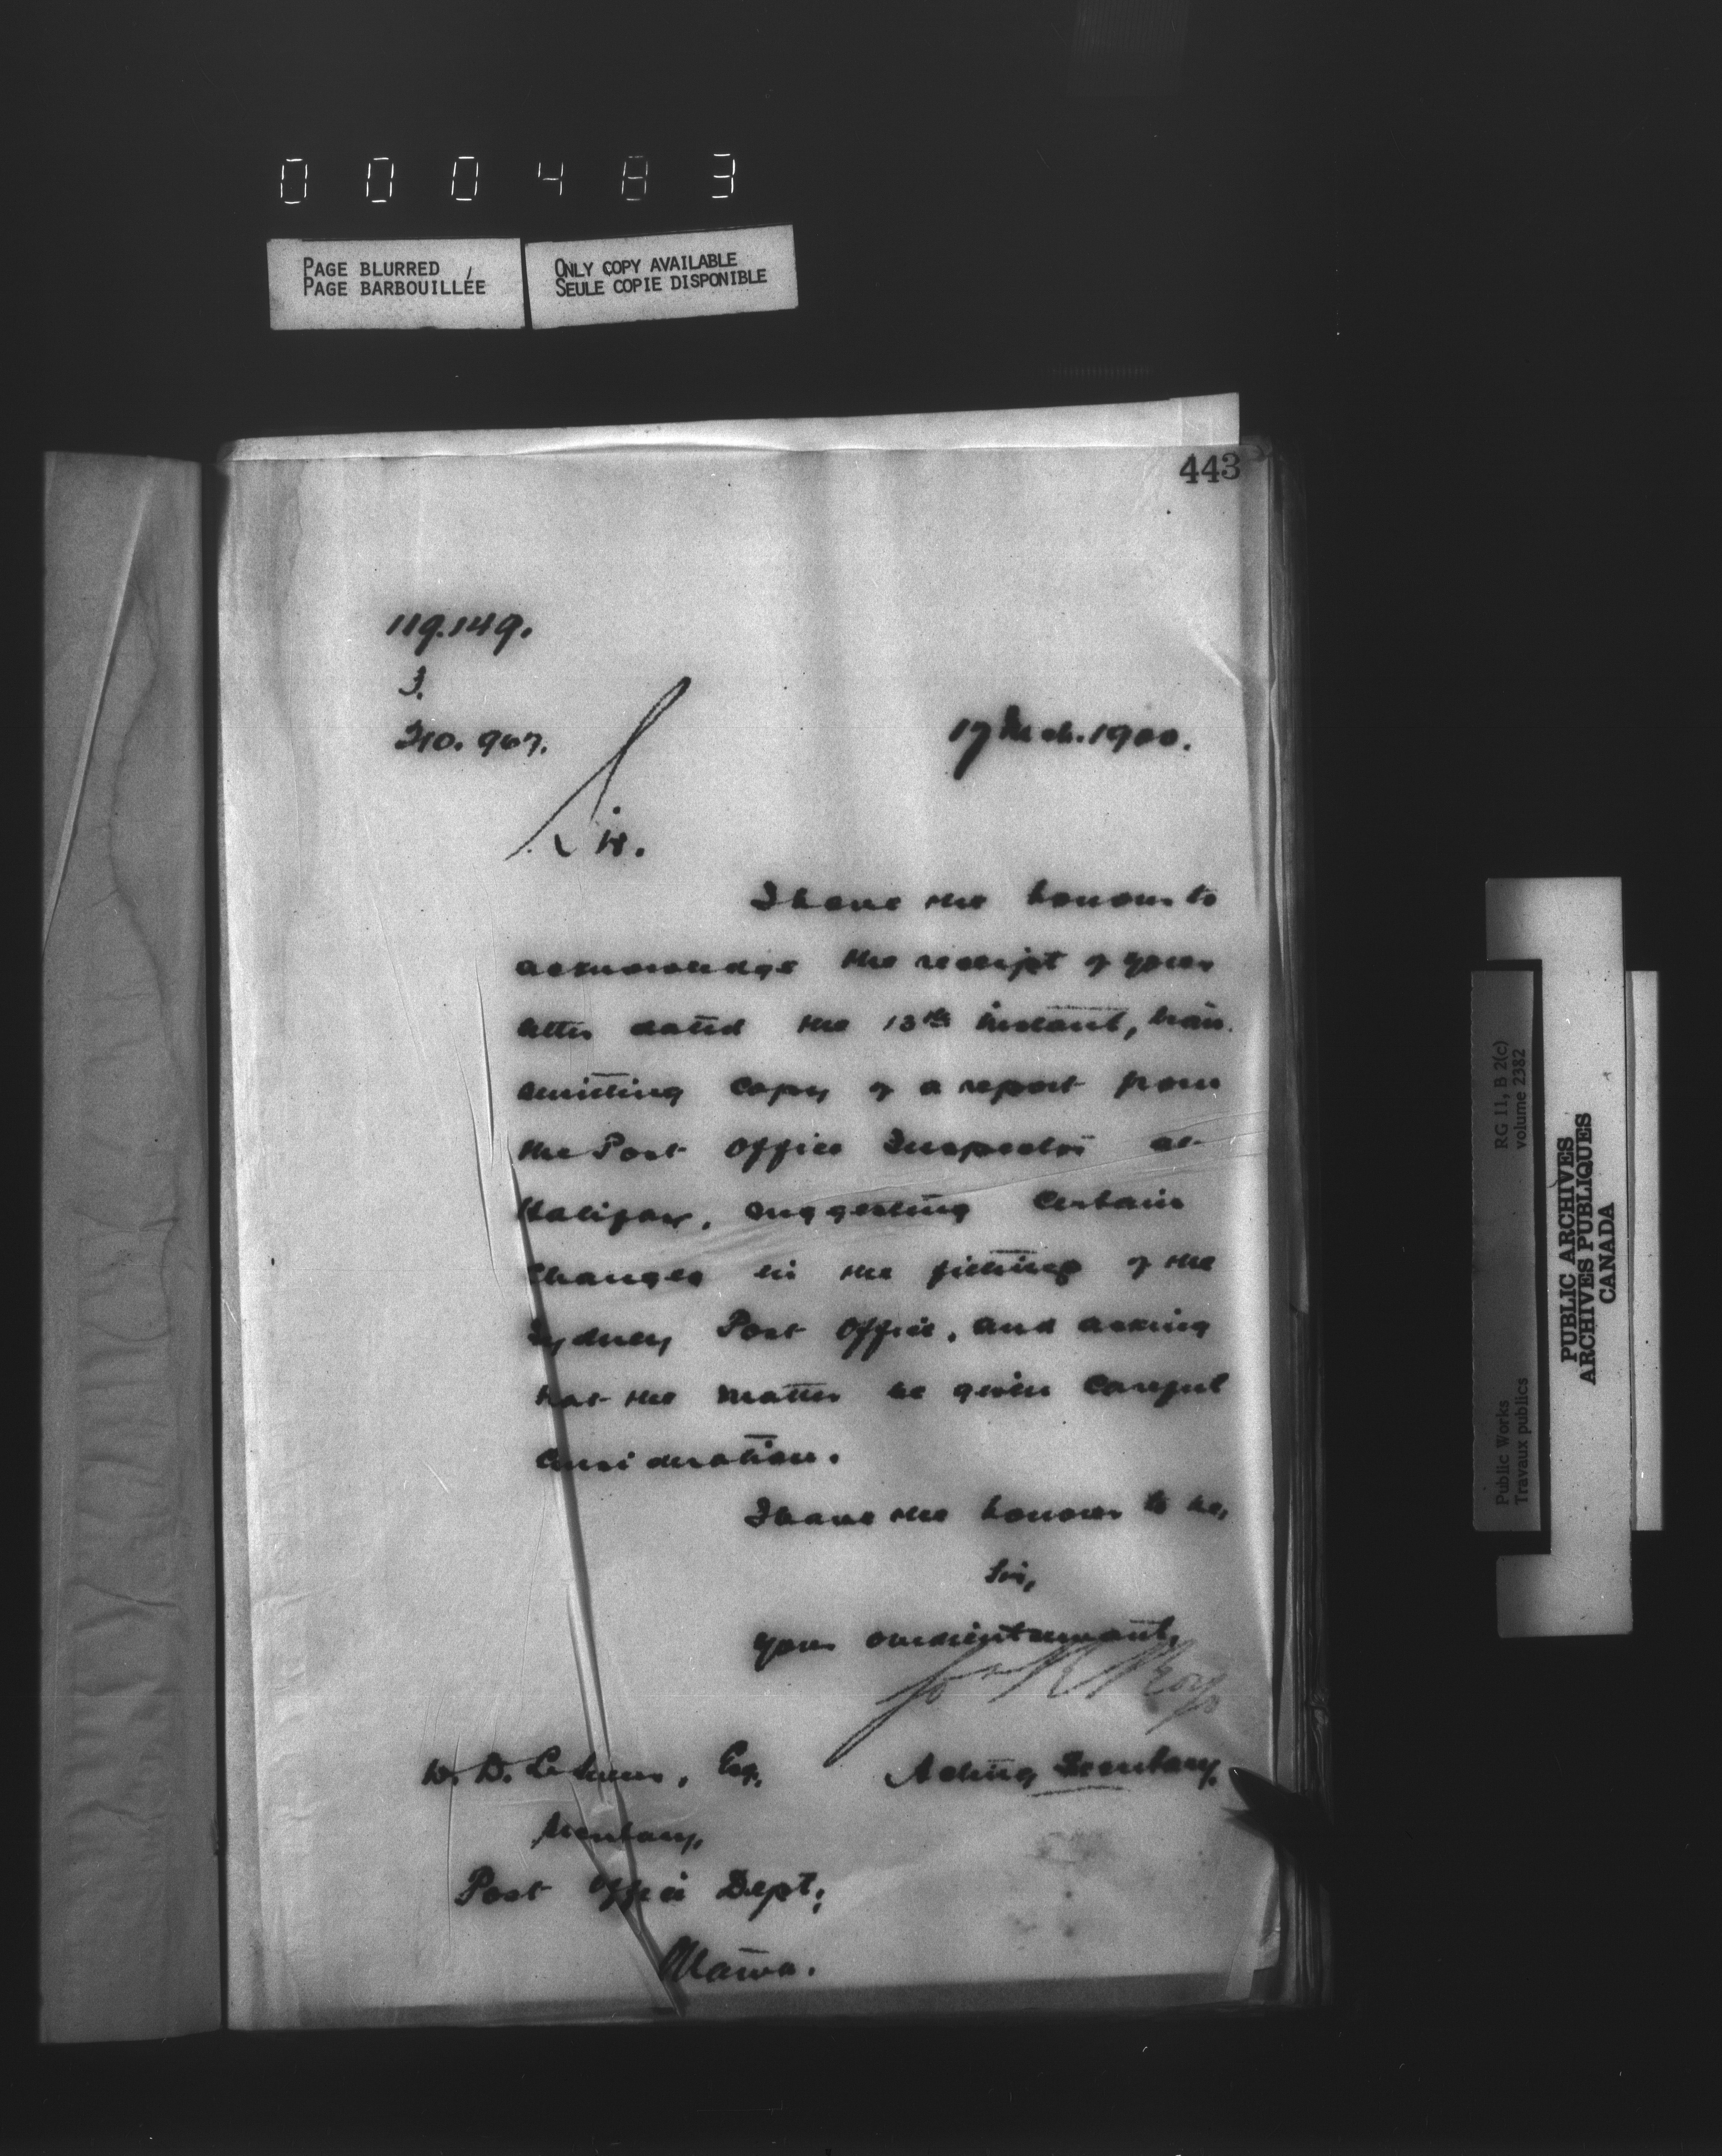 000483
PAGE BLURRED
PAGE BARBOUILLÉE
ONLY COPY AVAILABLE
SEULE COPIE DISPONIBLE
443
119.149.
No. 967.
17 Mch. 1900.
Sir.
I have the honour to
acknowledge the receipt of your
letter dated the 13th instant, trans
mitting copy of a report from
the Post Office Inspector at
Halifax, suggesting certain
changes in the fittings of the
Sydney Post Office, and asking
that the matter be given careful
consideration.
I have the honour to be,
Sir,
Your obedient servant,
Acting Secretary.
W. D. LeSueur, Esq.
Secretary,
Post Office Dept.,
Ottawa.
Public Works
Travaux publics
RG 11, B 2(c)
volume 2382
PUBLIC ARCHIVES
ARCHIVES PUBLIQUES
CANADA